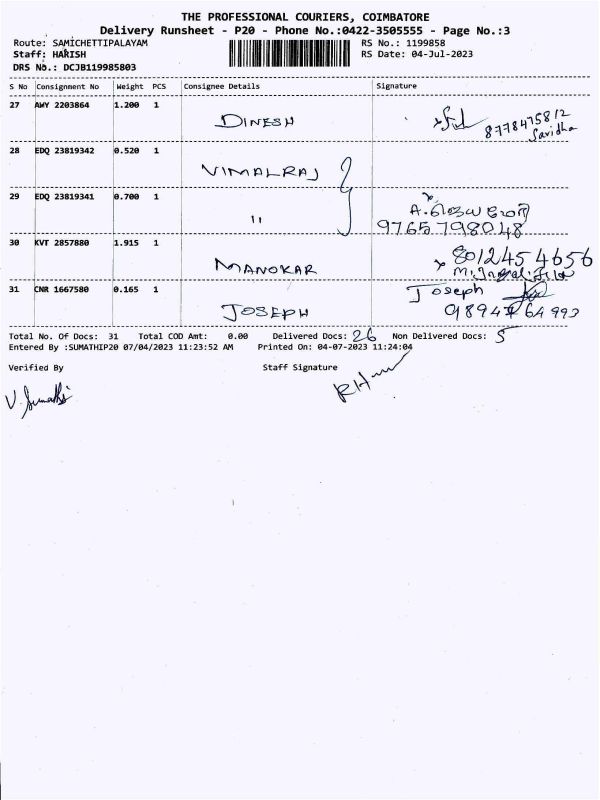 THE PROFESSIONAL COURIERS, COIMBATORE
Delivery Runsheet - P20 - Phone No.:0422-3505555 - Page No.:3
Route: SAMICHETTIPALAYAM RS No.: 1199858
Staff: HARISH RS Date: 04-Jul-2023
DRS No.: DCJB119985803
S No Consignment No Weight PCS Consignee Details Signature
27 AWY 2203864 1.200 1 DINESH 8778475812
Savidha
28 EDQ 23819342 0.520 1 VIMALRAJ
29 EDQ 23819341 0.700 1 "
9765798048
30 KVT 2857880 1.915 1 MANOKAR 8012454656
31 CNR 1667580 0.165 1 JOSEPH Joseph
Total No. Of Docs: 31 Total COD Amt: 0.00 Delivered Docs: 26 Non Delivered Docs: 5
Entered By :SUMATHIP20 07/04/2023 11:23:52 AM Printed On: 04-07-2023 11:24:04
Verified By Staff Signature
V. Sumathi